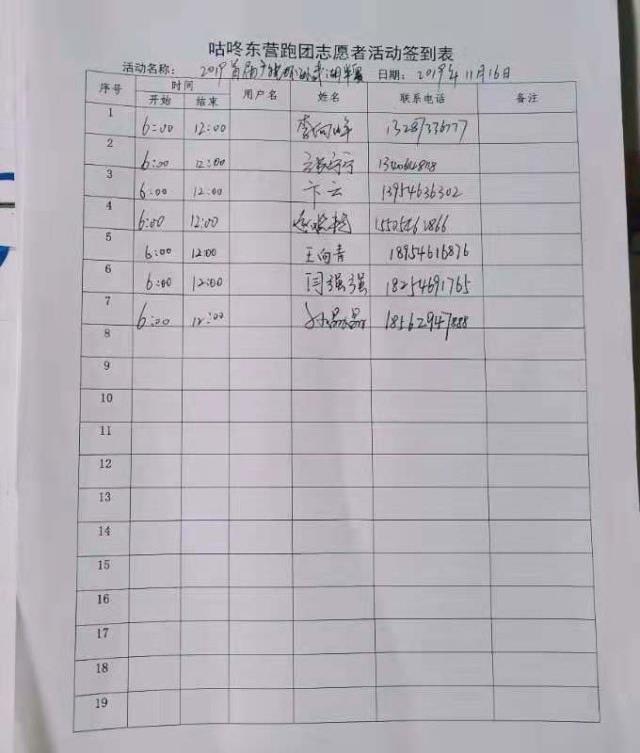 咕咚东营跑团志愿者活动签到表
活动名称: 2019首届 日期: 2019年11月16日
序号 时间 用户名 姓名 联系电话 备注
开始 结束
1 6:00 12:00 李向峰 13287336777
2 6:00 12:00
3 6:00 12:00 卞云 13954636302
4 6:00 12:00
5 6:00 12:00 王向青 18954616876
6 6:00 12:00 闫强强 18254691765
7 6:00 12:00 孙晶晶 18562947888
8
9
10
11
12
13
14
15
16
17
18
19